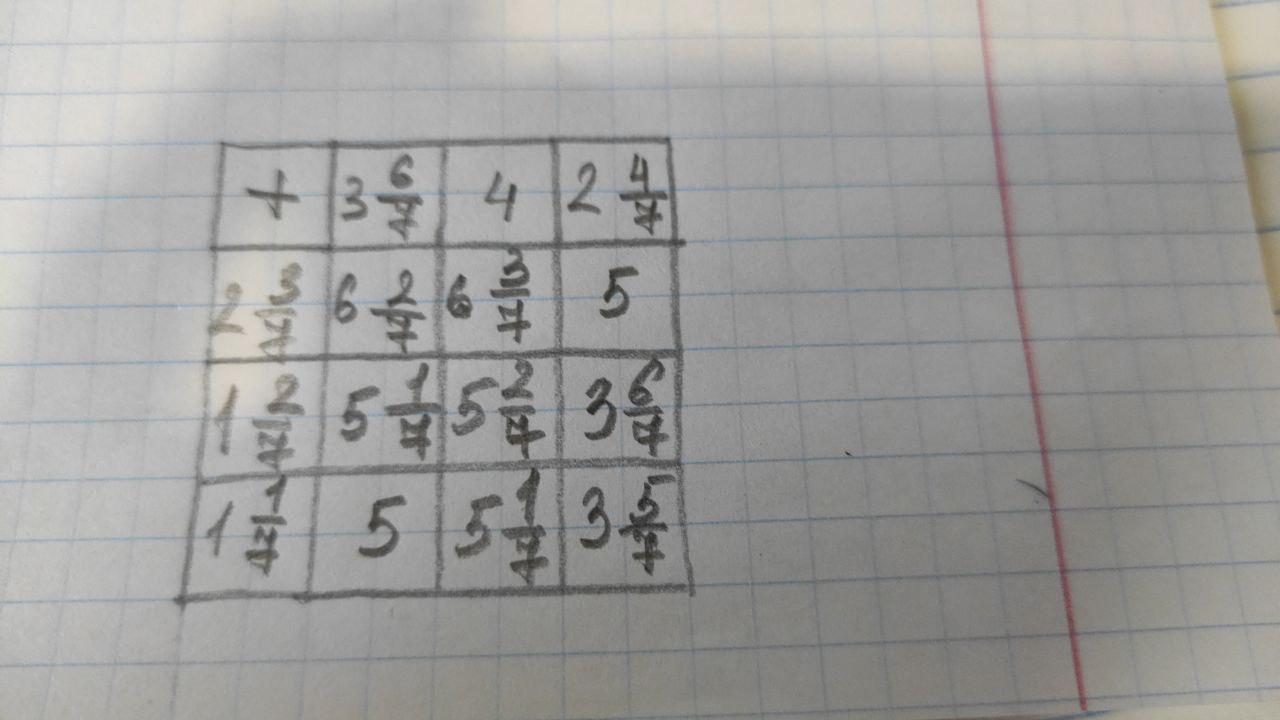 + 3 6/7 4 2 4/7
2 3/7 6 2/7 6 3/7 5
1 2/7 5 1/7 5 2/7 3 6/7
1 1/7 5 5 1/7 3 5/7